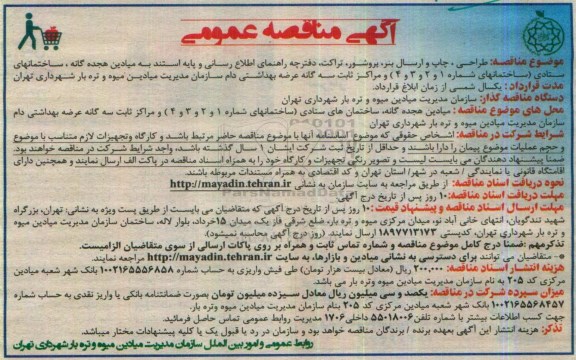 آگهی مناقصه عمومی
موضوع مناقصه: طراحی، چاپ و ارسال بنر، بروشور، تراکت، دفترچه راهنمای اطلاع رسانی و پایه استند به میادین هجده گانه، ساختمانهای
ستادی (ساختمانهای شماره ۱ و ۲ و ۳ و ۴) و مراکز ثابت سه گانه عرضه بهداشتی دام سازمان مدیریت میادین میوه و تره بار شهرداری تهران
مدت قرارداد: یکسال شمسی از زمان ابلاغ قرارداد.
دستگاه مناقصه گذار: سازمان مدیریت میادین میوه و تره بار شهرداری تهران
محل های موضوع مناقصه: میادین هجده گانه، ساختمان های ستادی (ساختمانهای شماره ۱ و ۲ و ۳ و ۴) و مراکز ثابت سه گانه عرضه بهداشتی دام
سازمان مدیریت میادین میوه و تره بار شهرداری تهران
شرایط شرکت در مناقصه: اشخاص حقوقی که موضوع اساسنامه آنها با موضوع مناقصه حاضر مرتبط باشد و کارگاه وتجهیزات لازم متناسب با موضوع
و حجم عملیات موضوع پیمان را دارا باشند و حداقل از تاریخ ثبت شرکت ایشان ۱ سال گذشته باشد، واجد شرایط شرکت در مناقصه خواهند بود.
ضمنا پیشنهاد دهندگان می بایست لیست و تصویر رنگی تجهیزات و کارگاه خود را به همراه اسناد مناقصه در پاکت الف ارسال نمایند و همچنین دارای
اقامتگاه قانونی یا نمایندگی / شعبه در شهر/ استان تهران و کد اقتصادی به همراه مستندات مربوطه باشند.
نحوه دریافت اسناد مناقصه: از طریق مراجعه به سایت سازمان به نشانی http://mayadin.tehran.ir
مهلت دریافت اسناد مناقصه: ۱۰ روز پس از تاریخ درج آگهی
مهلت ارسال اسناد مناقصه و پیشنهاد قیمت: ۱۰ روز پس از تاریخ درج آگهی که متقاضیان می بایست از طریق پست ویژه به نشانی: تهران، بزرگراه
شهید تندگویان، انتهای خانی آباد نو، میدان مرکزی میوه و تره بار، ضلع شرقی فاز یک میدان ۱۵خرداد، بلوار لاله، ساختمان سازمان مدیریت میادین میوه
و تره بار شهرداری تهران، کدپستی ۱۸۹۷۷۱۳۱۷۳ ارسال نمایند. (روز درج آگهی محاسبه نمیشود).
تذکر مهم: ضمنا درج کامل موضوع مناقصه و شماره تماس ثابت و همراه بر روی پاکات ارسالی از سوی متقاضیان الزامیست.
* – متقاضیان می توانند برای دسترسی به نشانی میادین و بازارها، به سایت http://mayadin.tehran.ir مراجعه نمایند.
هزینه انتشار اسناد مناقصه: ۲۰۰,۰۰۰ ریال (معادل بیست هزار تومان) طی فیش واریزی به حساب شماره ۱۰۰۲۱۶۵۵۵۶۸۵۸ بانک شهر شعبه میادین
مرکزی کد ۲۰۵ به نام سازمان مدیریت میادین میوه و تره بار می باشد.
میزان سپرده شرکت در مناقصه: یکصد و سی میلیون ریال معادل سیزده میلیون تومان بصورت ضمانتنامه بانکی یا واریز نقدی به حساب شماره
۱۰۰۲۱۶۵۵۶۸۴۵۷ بانک شهر شعبه میادین مرکزی کد ۲۰۵ بنام سازمان مدیریت میادین میوه وتره بار.
جهت کسب اطلاعات بیشتر با شماره تلفن ۵۵۰۱۸۰۰۶ داخلی ۱۷۰۶ مدیریت روابط عمومی تماس حاصل فرمائید.
تذکر: هزینه انتشار این آگهی بعهده برنده / برندگان مناقصه خواهد بود و سازمان در رد یا قبول یک یا کلیه پیشنهادات مختار میباشد.
روابط عمومی و امور بین الملل سازمان مدیریت میادین میوه و تره بار شهرداری تهران